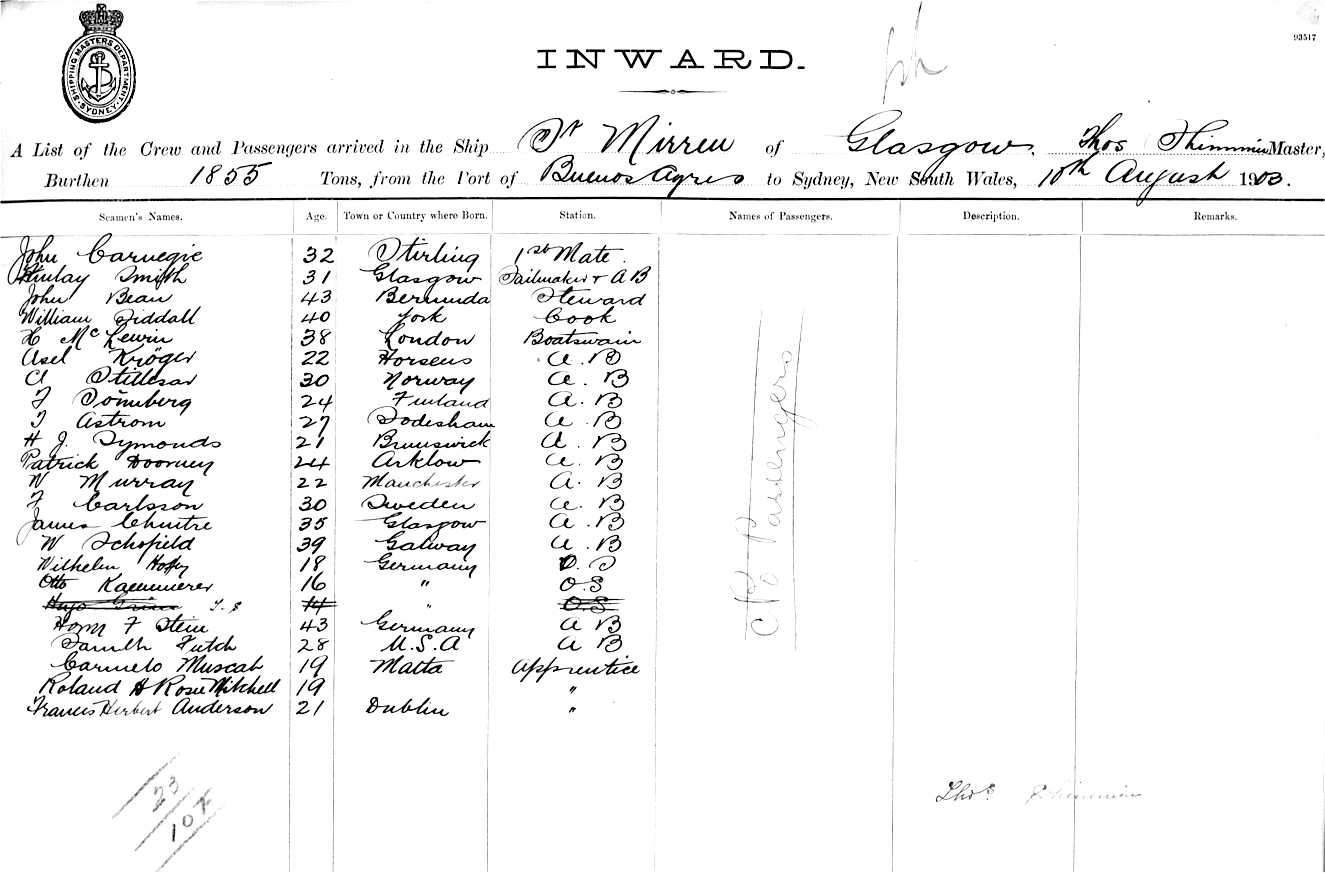 SHIPPING MASTERS DEPARTMENT SYDNEY
93517
INWARD.
A List of the Crew and Passengers arrived in the Ship St Mirren of Glasgow. Thos Shimmin Master,
Burthen 1855 Tons, from the Port of Buenos Ayres to Sydney, New South Wales, 10th August 1903.
Seamen's Names. Age. Town or Country where Born. Station. Names of Passengers. Description. Remarks.
John Carnegie 32 Stirling 1st Mate
Finlay Smith 31 Glasgow Sailmaker + A B
John Bean 43 Bermuda Steward
William Siddall 40 York Cook
H McLewin 38 London Boatswain
Axel Kröger 22 Horsens A.B
30 Norway A.B
F 24 Finland A.B
Astrom 27 A.B
H J. Symonds 21 Brunswick A.B
Patrick 24 Arklow A.B
W Murray 22 Manchester A.B
F Carlsson 30 Sweden A.B
James 35 Glasgow A.B
W Schofield 39 Galway A.B
Wilhelm 18 Germany O.S
Otto Kaemmerer 16 " O.S
Hugo 14 " O.S
F Stein 43 Germany A B
Futch 28 U.S.A A B
Carmelo Muscat 19 Malta Apprentice
Roland H Rosie Mitchell 19 "
Francis Herbert Anderson 21 Dublin "
No Passengers
23
Thos. Shimmin